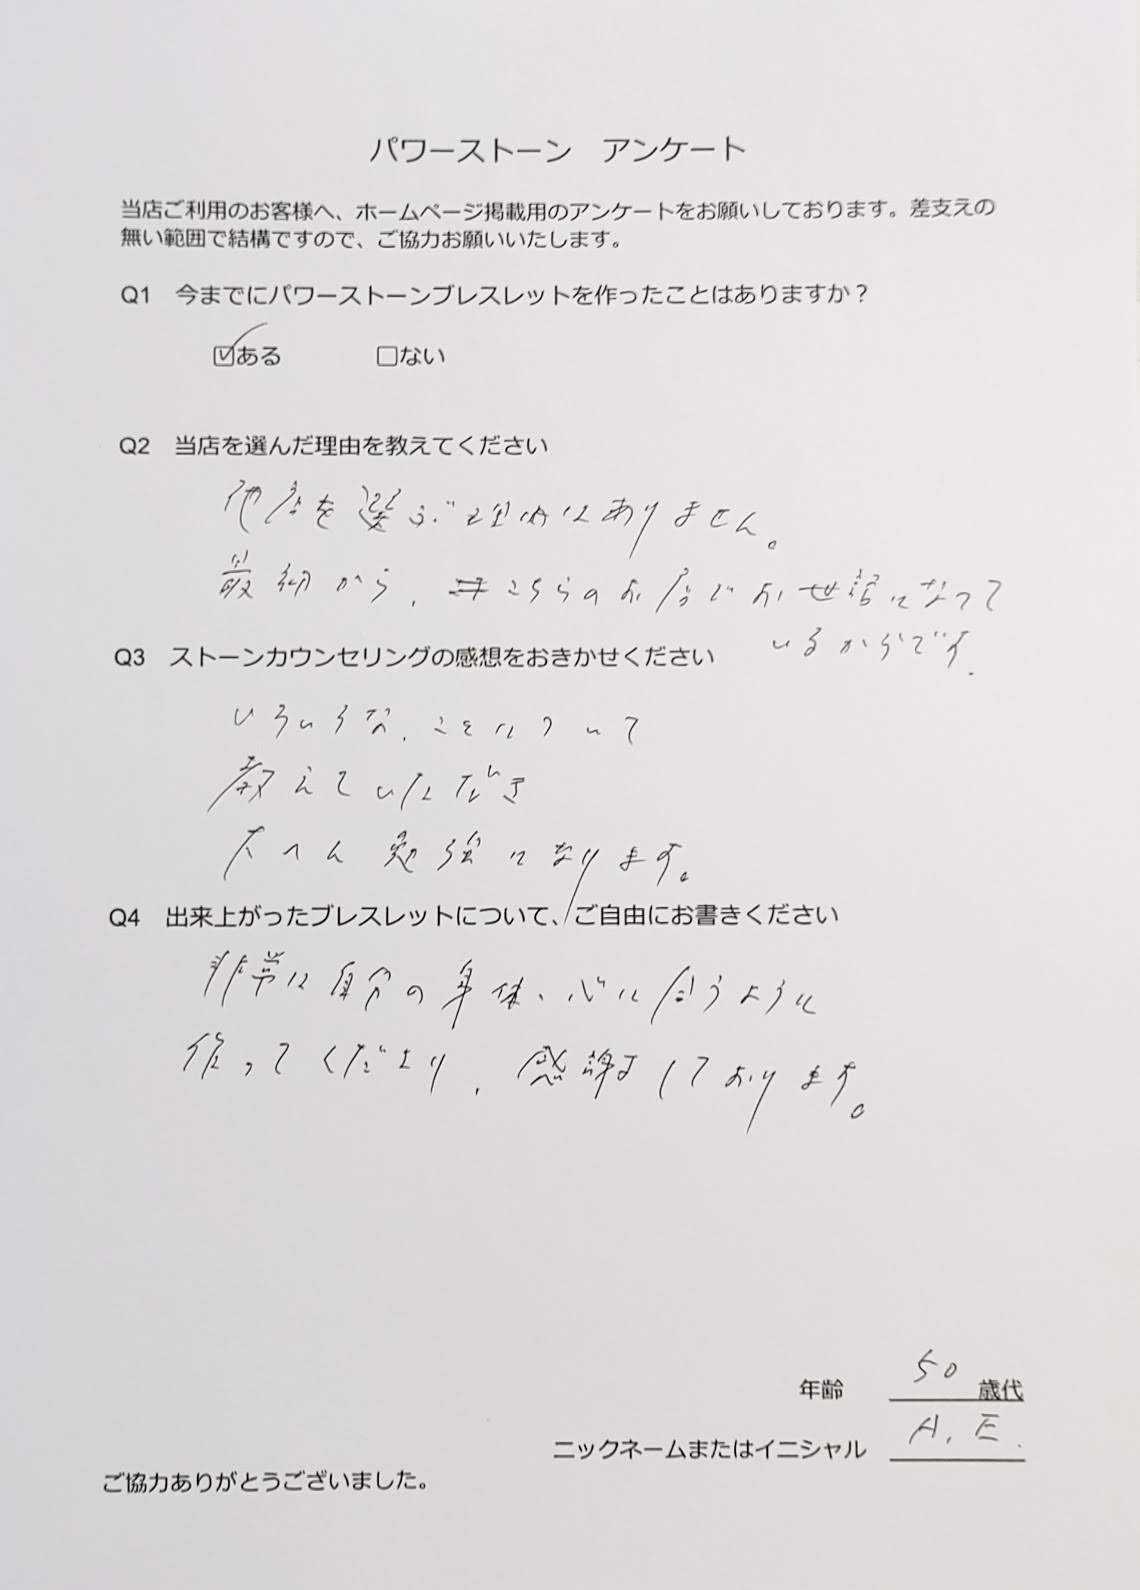 パワーストーン　アンケート
当店ご利用のお客様へ、ホームページ掲載用のアンケートをお願いしております。差支えの
無い範囲で結構ですので、ご協力お願いいたします。
Q1　今までにパワーストーンブレスレットを作ったことはありますか？
☑ある　　□ない
Q2　当店を選んだ理由を教えてください
他店を選ぶ理由はありません。
最初から、こちらのお店でお世話になって
いるからです.
Q3　ストーンカウンセリングの感想をおきかせください
いろいろな、ことについて
教えていただき
大へん勉強になります。
Q4　出来上がったブレスレットについて、ご自由にお書きください
非常に自分の身体、心に合うように
作ってくださり、感謝しております。
年齢　50 歳代
ニックネームまたはイニシャル　A. E.
ご協力ありがとうございました。